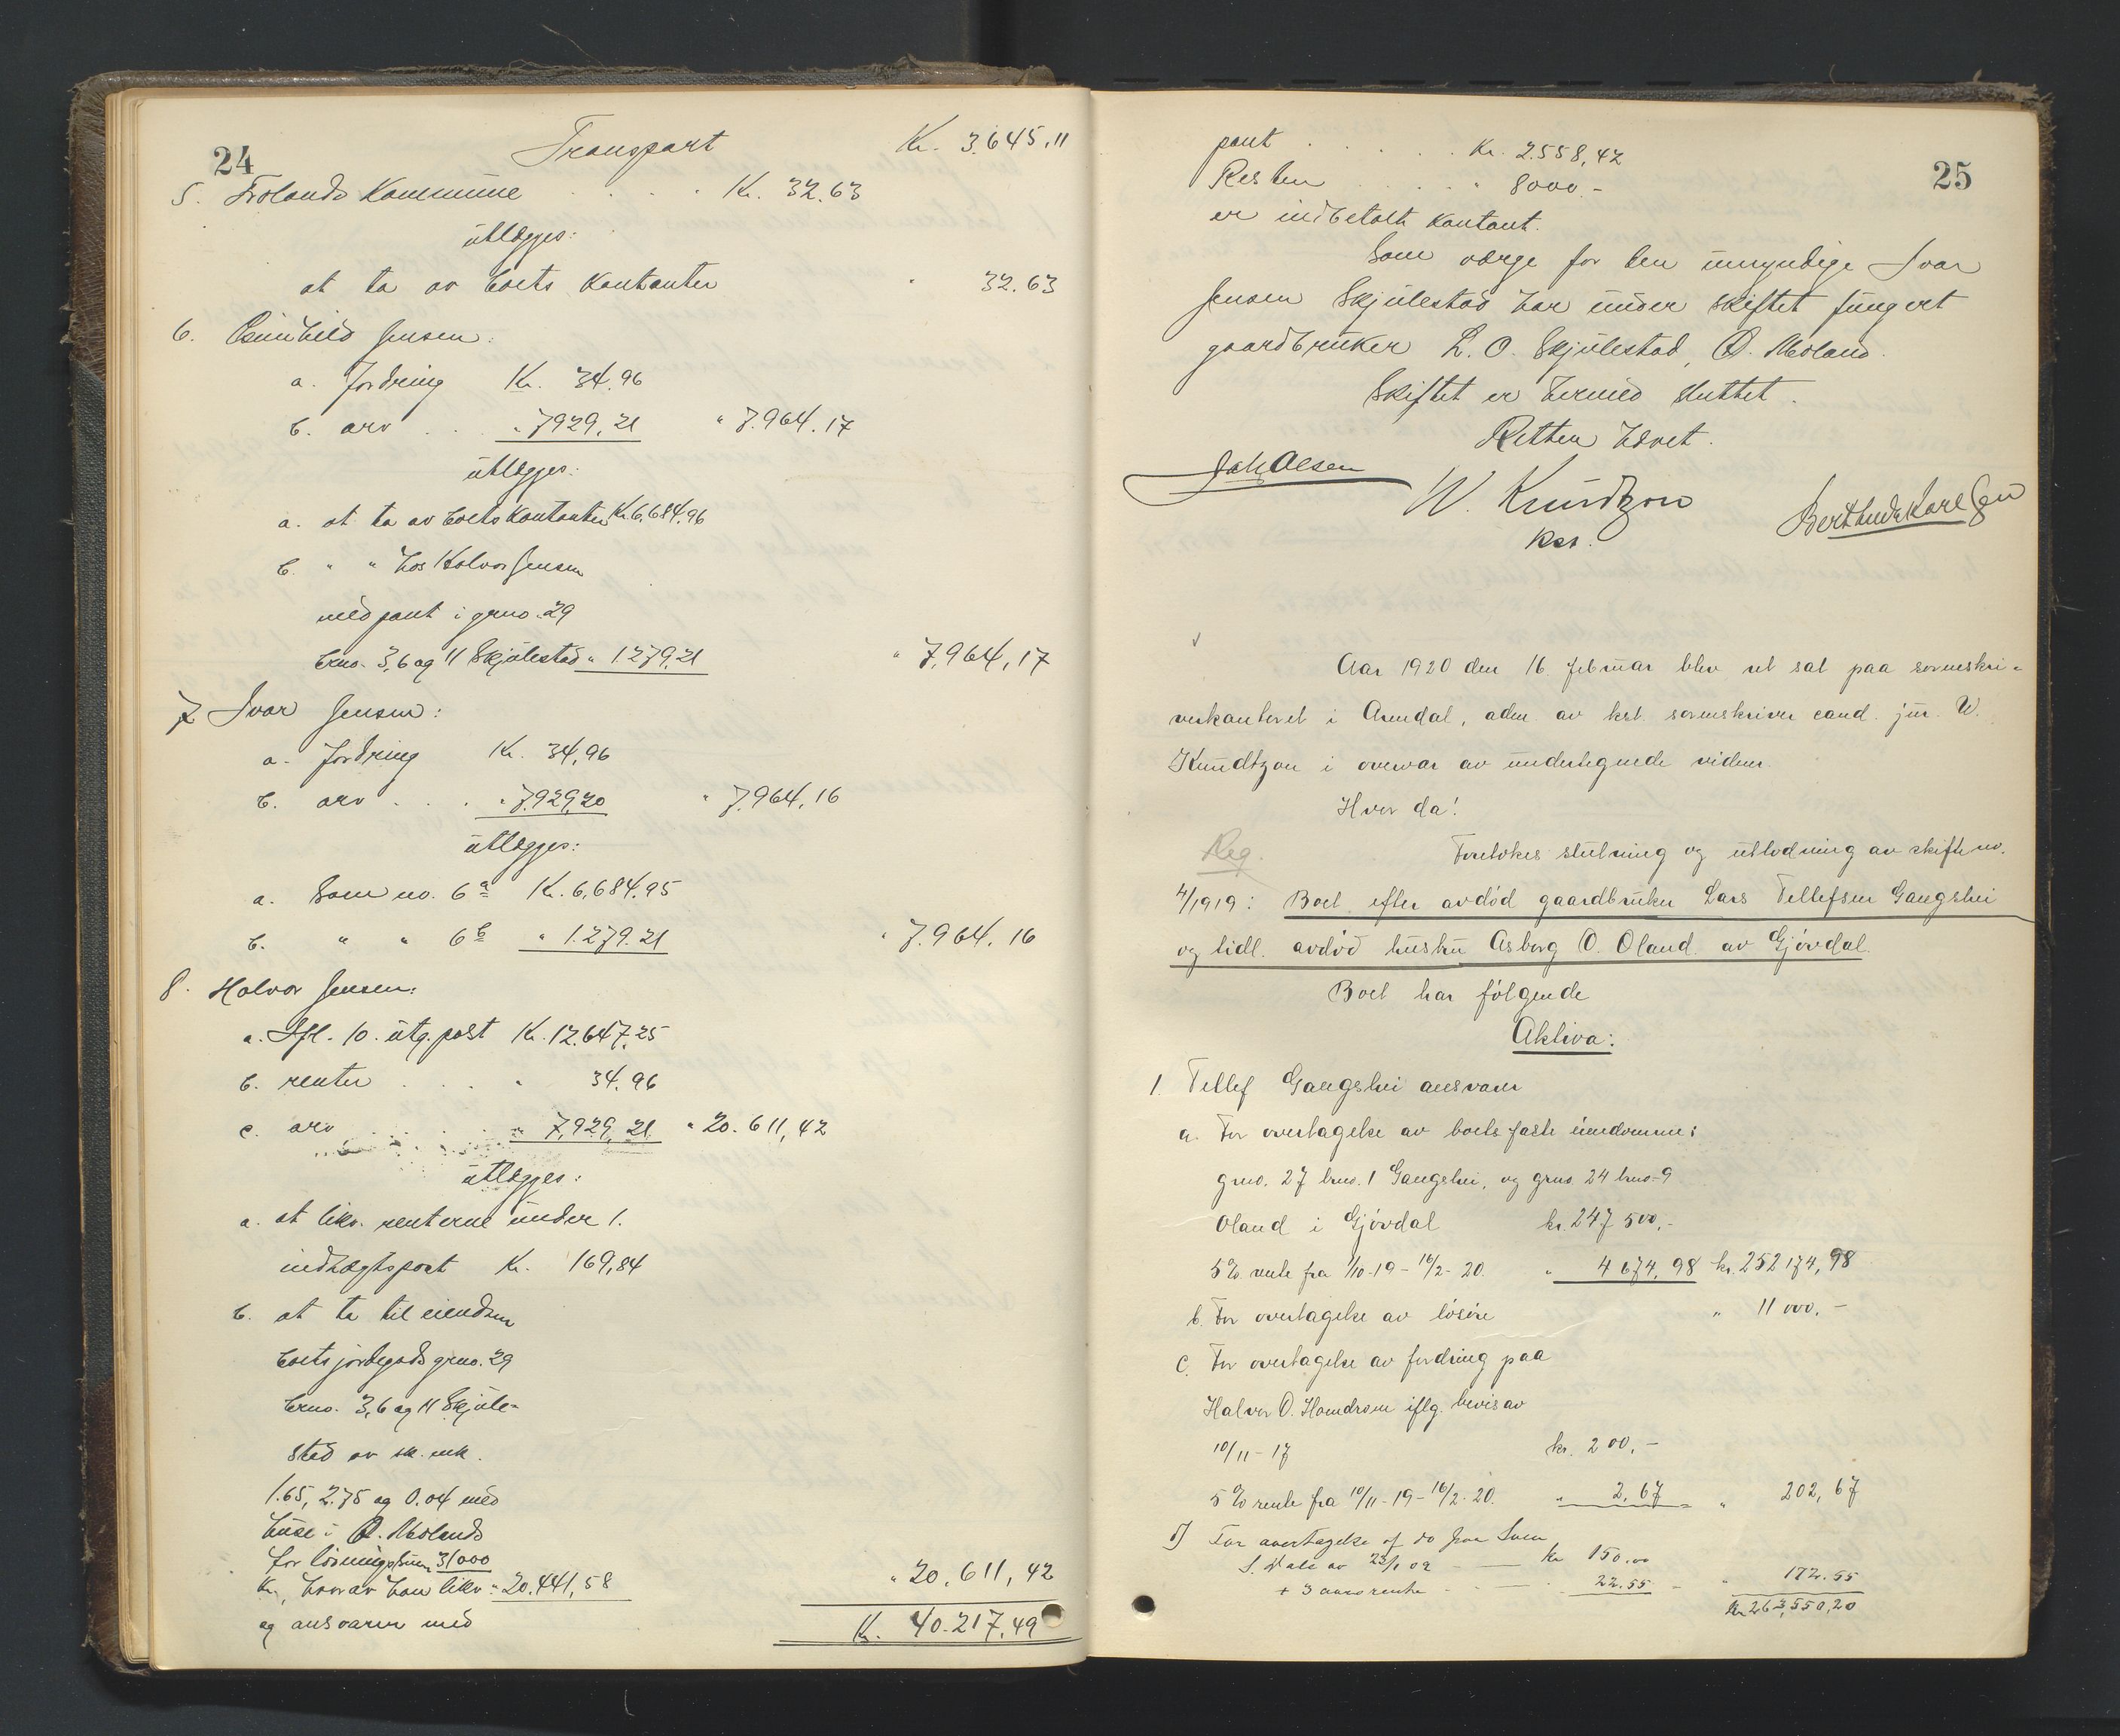 24
Transport Kr. 3.645,11
5. Frolands Kommune . . . Kr. 32.63
utlægges:
at ta av boets Kontanter " 32.63
6. Gunhild Jensen:
a. Fordring Kr. 34.96
b. arv . . . " 7929,21 " 7.964.17
utlægges:
a. at ta av boets Kontanter Kr. 6.684,96
b. " " hos Halvor Jensen
med pant i grno. 29
brno. 3,6 og 11 Skjulestad " 1279,21 " 7.964,17
7. Ivar Jensen:
a. Fordring Kr. 34,96
b. arv . . . " 7.929,20 " 7.964,16
utlægges:
a. Som no. 6a Kr. 6.684.95
b. " " 6b " 1.279.21 " 7.964.16
8. Halvor Jensen:
a. Ifl. 10. utg. post Kr. 12.647,25
b. renter . . . " 34.96
c. arv . . . " 7,929,21 " 20.611,42
utlægges:
a. at likv. renterne under 1.
indtægtspost Kr. 169,84
b. at ta til eiendom
boets jordegods grno. 29
brno. 3,6 og 11 Skjule-
stad av sk. mk.
1.65, 2.75 og 0.04 med
huse i Ø. Moland
for løsningssum 31000
Kr., hvorav han likv. " 20.441,58 " 20.611,42
og ansvarer med Kr. 40.217,49
25
pant . . . . . Kr. 2.558,42
Resten . . . . . " 8000.-
er indbetalt kontant.
Som værge for den umyndige Ivar
Jensen Skjulestad har under skiftet fungert
gaardbruker L. O. Skjulestad, Ø. Moland.
Skiftet er hermed sluttet.
Retten hævet.
Joh Olsen W. Knudtzon Berthud Karlsen
Kst.
Aar 1920 den 16. februar blev ret sat paa sorenskri-
verkontoret i Arendal, adm. av kst. sorenskriver cand. jur. W.
Knudtzon i overvær av undertegnede vidner.
Hvor da!
Reg. Foretokes slutning og utlodning av skifte no.
4/1919: Boet efter avdød gaardbruker Lars Tellefsen Gangshei
og tidl. avdød hustru Asborg O. Øland av Gjøvdal.
Boet har følgende
Aktiva:
1. Tellef Gangshei ansvarer
a. For overtagelse av boets faste eiendomme:
grno. 27 brno. 1 Gangshei, og grno 24 brno-9
Øland i Gjøvdal kr. 247 500,-
5 % rente fra 1/10-19 - 16/2-20. " 4 674,98 kr. 252 174,98
b. For overtagelse av løsøre " 11 000,-
c. For overtagelse av fordring paa
Halvor O. Homdrom iflg. bevis av
10/11-17 kr. 200,-
5 % rente fra 10/11-19 - 16/2-20. " 2,67 " 202,67
d) For overtagelse af do paa Sven
S. Dale av 23/1 09 Kr 150.00
+ 3 aars rente 22.55 " 172.55
Kr 263,550,20